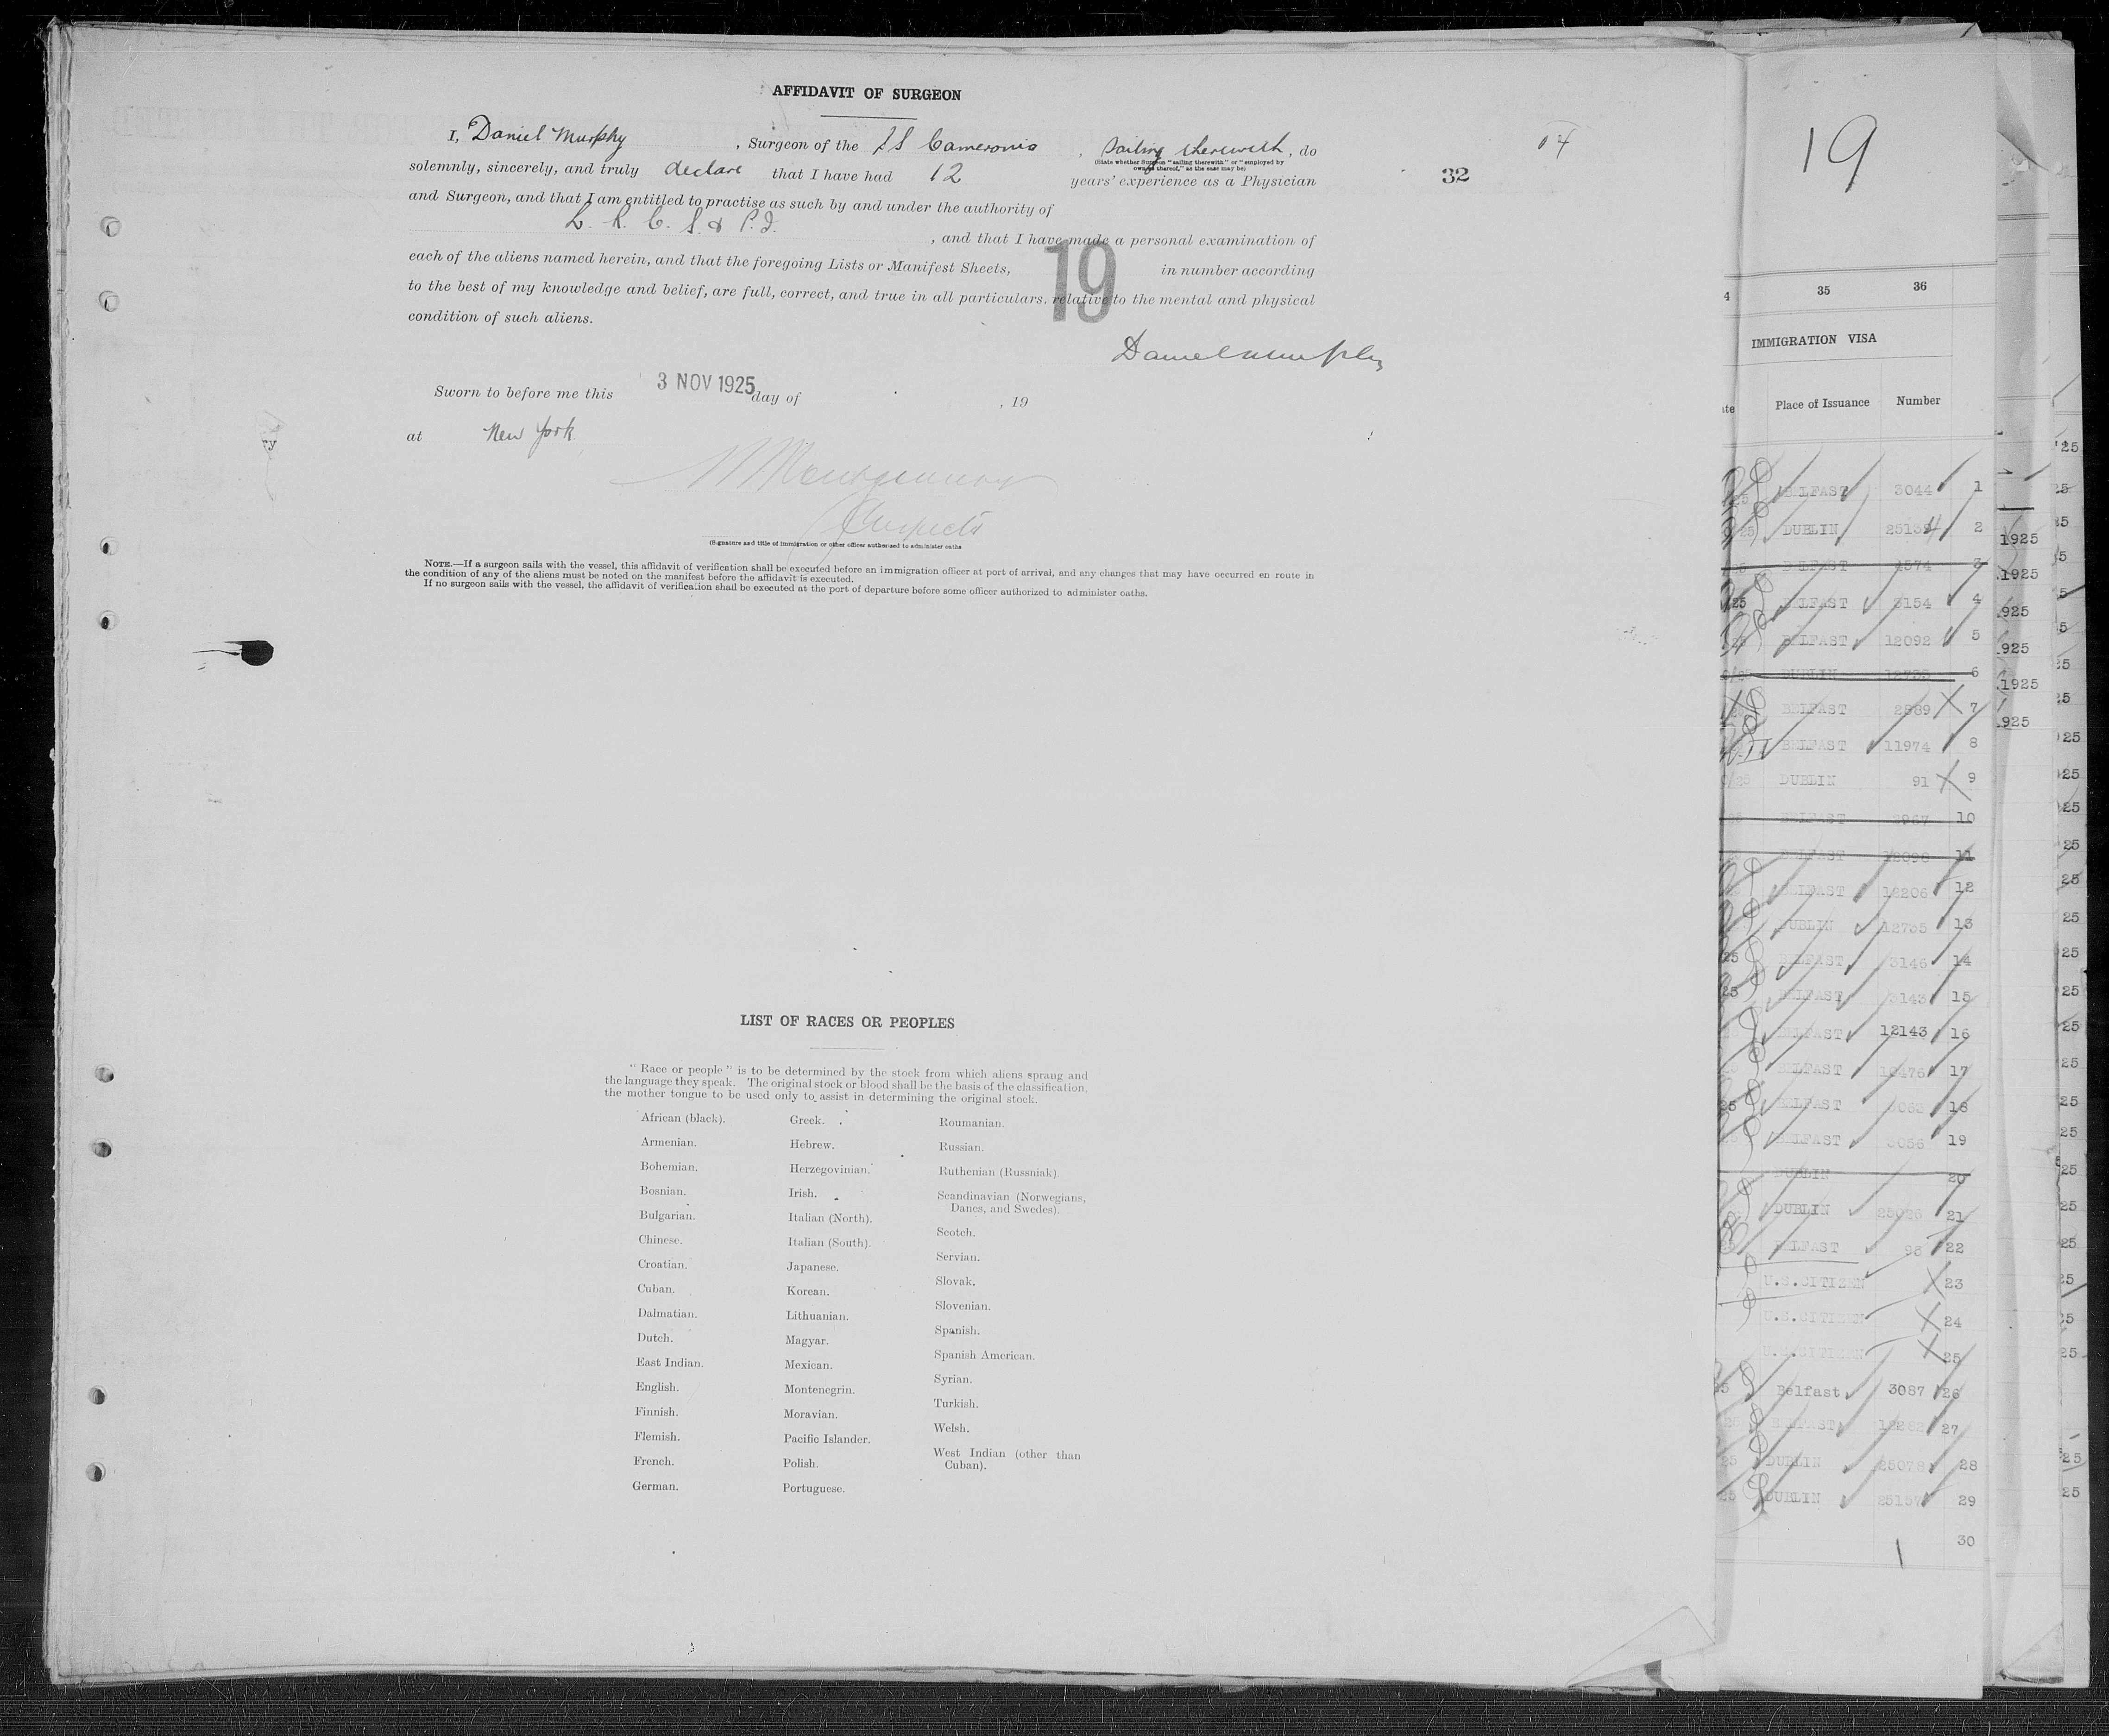 AFFIDAVIT OF SURGEON
I, Daniel Murphy , Surgeon of the SS Cameronia , sailing therewith, do
(State whether Surgeon "sailing therewith" or "employed by
owners thereof," as the case may be)
solemnly, sincerely, and truly declare that I have had 12 years' experience as a Physician
and Surgeon, and that I am entitled to practise as such by and under the authority of
L. R. C. S. & P. I. , and that I have made a personal examination of
each of the aliens named herein, and that the foregoing Lists or Manifest Sheets, 19 in number according
to the best of my knowledge and belief, are full, correct, and true in all particulars, relative to the mental and physical
condition of such aliens.
Daniel Murphy
Sworn to before me this 3 NOV 1925 day of , 19
at New York
Montgomery
(Signature and title of immigration or other officer authorised to administer oaths
NOTE.—If a surgeon sails with the vessel, this affidavit of verification shall be executed before an immigration officer at port of arrival, and any changes that may have occurred en route in
the condition of any of the aliens must be noted on the manifest before the affidavit is executed.
If no surgeon sails with the vessel, the affidavit of verification shall be executed at the port of departure before some officer authorized to administer oaths.
32
19
LIST OF RACES OR PEOPLES
" Race or people " is to be determined by the stock from which aliens sprang and
the language they speak. The original stock or blood shall be the basis of the classification,
the mother tongue to be used only to assist in determining the original stock.
African (black).
Armenian.
Bohemian.
Bosnian.
Bulgarian.
Chinese.
Croatian.
Cuban.
Dalmatian.
Dutch.
East Indian.
English.
Finnish.
Flemish.
French.
German.
Greek.
Hebrew.
Herzegovinian.
Irish.
Italian (North).
Italian (South).
Japanese.
Korean.
Lithuanian.
Magyar.
Mexican.
Montenegrin.
Moravian.
Pacific Islander.
Polish.
Portuguese.
Roumanian.
Russian.
Ruthenian (Russniak).
Scandinavian (Norwegians,
Danes, and Swedes).
Scotch.
Servian.
Slovak.
Slovenian.
Spanish.
Spanish American.
Syrian.
Turkish.
Welsh.
West Indian (other than
Cuban).
35 36
IMMIGRATION VISA
Place of Issuance Number
BELFAST 3044 1
DUBLIN 2
BELFAST 4574 3
BELFAST 3154 4
BELFAST 12092 5
DUBLIN 12733 6
BELFAST 2589 7
BELFAST 11974 8
DUBLIN 91 9
BELFAST 10
BELFAST 11
BELFAST 12206 12
DUBLIN 12735 13
BELFAST 3146 14
BELFAST 3143 15
BELFAST 12143 16
BELFAST 17
BELFAST 18
BELFAST 3056 19
DUBLIN 20
DUBLIN 21
BELFAST 22
U.S.CITIZEN 23
U.S.CITIZEN 24
U.S.CITIZEN 25
Belfast 3087 26
BELFAST 27
DUBLIN 25078 28
DUBLIN 29
30